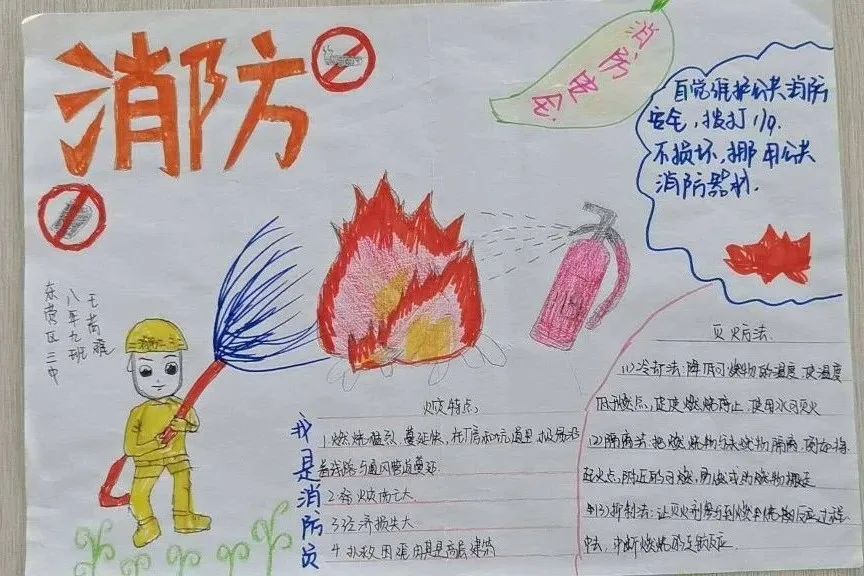 消防
消防安全
自觉维护公共消防
安全,拨打119.
不损坏,挪用公共
消防器材.
东营区三中
八年九班
我是消防员
火灾特点
1燃烧猛烈 蔓延快,在厂房和坑道里
着线路与通风管道蔓延
2.
3.经济损失大
4.扑救困难 尤其是高层建筑
灭火方法
(1)冷却法:降低可燃物的温度 使温度
低于燃点,促使燃烧停止 使用水可灭火
(2)隔离法:把燃烧物与未燃物隔离
起火点,附近的可燃,易燃或助燃物搬走
(3)抑制法:让灭火剂参与到燃烧反应过程
中去,中断燃烧的连锁反应.